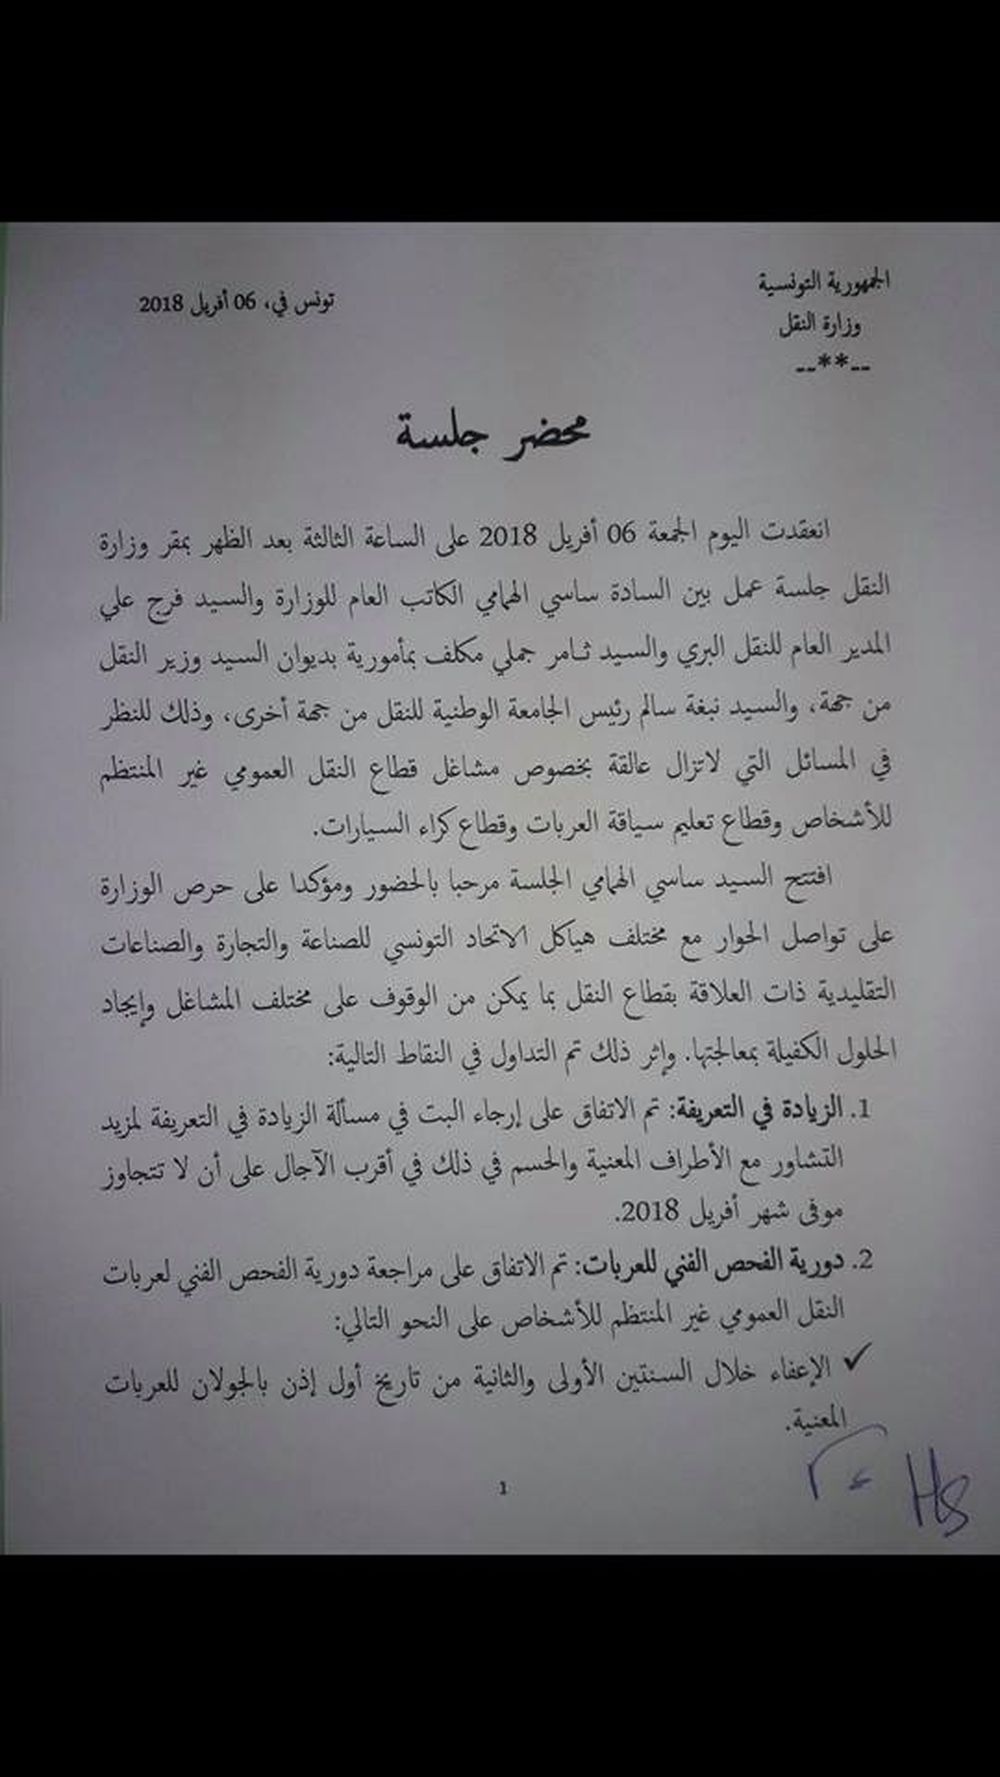 الجمهورية التونسية
وزارة النقل
--**--
تونس في، 06 أفريل 2018
محضر جلسة
انعقدت اليوم الجمعة 06 أفريل 2018 على الساعة الثالثة بعد الظهر بمقر وزارة
النقل جلسة عمل بين السادة ساسي الهمامي الكاتب العام للوزارة والسيد فرج علي
المدير العام للنقل البري والسيد ثامر جملي مكلف بمأمورية بديوان السيد وزير النقل
من جهة، والسيد نبغة سالم رئيس الجامعة الوطنية للنقل من جهة أخرى، وذلك للنظر
في المسائل التي لاتزال عالقة بخصوص مشاغل قطاع النقل العمومي غير المنتظم
للأشخاص وقطاع تعليم سياقة العربات وقطاع كراء السيارات.
افتتح السيد ساسي الهمامي الجلسة مرحبا بالحضور ومؤكدا على حرص الوزارة
على تواصل الحوار مع مختلف هياكل الاتحاد التونسي للصناعة والتجارة والصناعات
التقليدية ذات العلاقة بقطاع النقل بما يمكن من الوقوف على مختلف المشاغل وإيجاد
الحلول الكفيلة بمعالجتها. وإثر ذلك تم التداول في النقاط التالية:
1. الزيادة في التعريفة: تم الاتفاق على إرجاء البت في مسألة الزيادة في التعريفة لمزيد
التشاور مع الأطراف المعنية والحسم في ذلك في أقرب الآجال على أن لا تتجاوز
موفى شهر أفريل 2018.
2. دورية الفحص الفني للعربات: تم الاتفاق على مراجعة دورية الفحص الفني لعربات
النقل العمومي غير المنتظم للأشخاص على النحو التالي:
✓ الإعفاء خلال السنتين الأولى والثانية من تاريخ أول إذن بالجولان للعربات
المعنية.
1